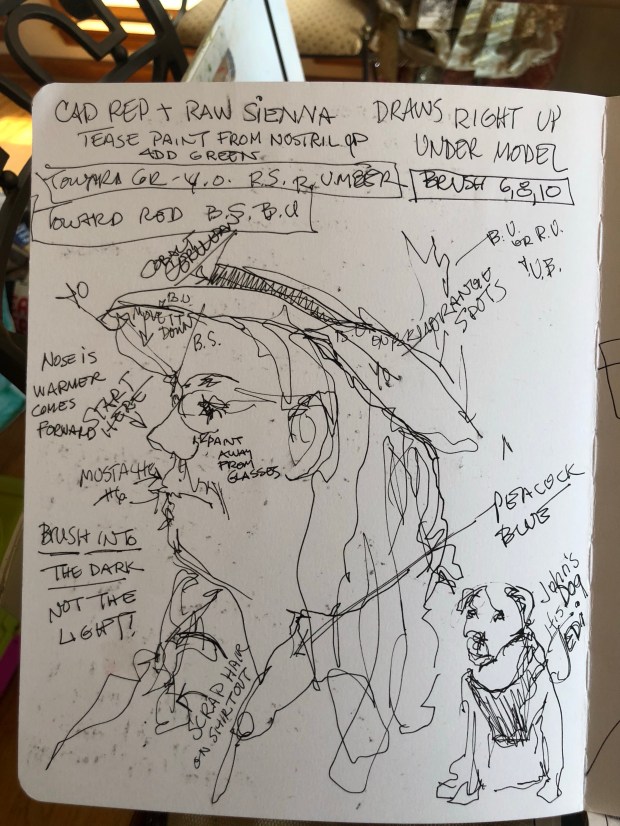 CAD RED + RAW SIENNA
TEASE PAINT FROM NOSTRIL UP
ADD GREEN
TOWARD GR - Y.O. R.S. R. UMBER
TOWARD RED B.S. B.U
DRAWS RIGHT UP
UNDER MODEL
BRUSH 6,8,10
COBALT
B.U.
OR R.U.
+ U.B.
YO
B.U.
MOVE IT
DOWN
B.S.
SPOTS
NOSE IS
WARMER
COMES
FORWARD
START
HERE
PAINT
AWAY
FROM
GLASSES
MUSTACHE
#6
BRUSH INTO
THE DARK
NOT THE
LIGHT!
PEACOCK
BLUE
SCRAP HAIR
ON SHIRT OUT
JOHN'S
DOG
JEDI